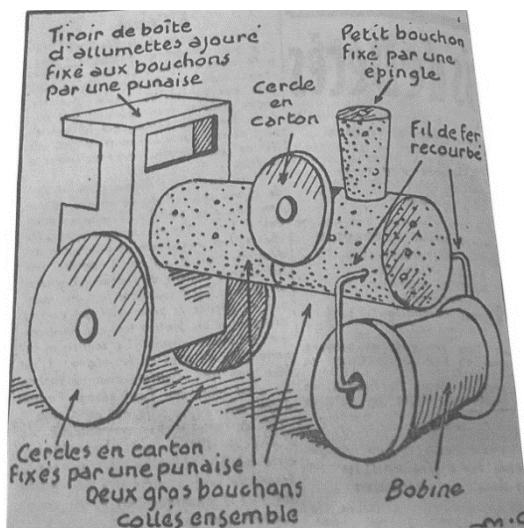 Tiroir de boîte
d'allumettes ajouré
fixé aux bouchons
par une punaise
Petit bouchon
fixé par une
épingle
Cercle
en
carton
Fil de fer
recourbé
Cercles en carton
fixés par une punaise
Deux gros bouchons
collés ensemble
Bobine